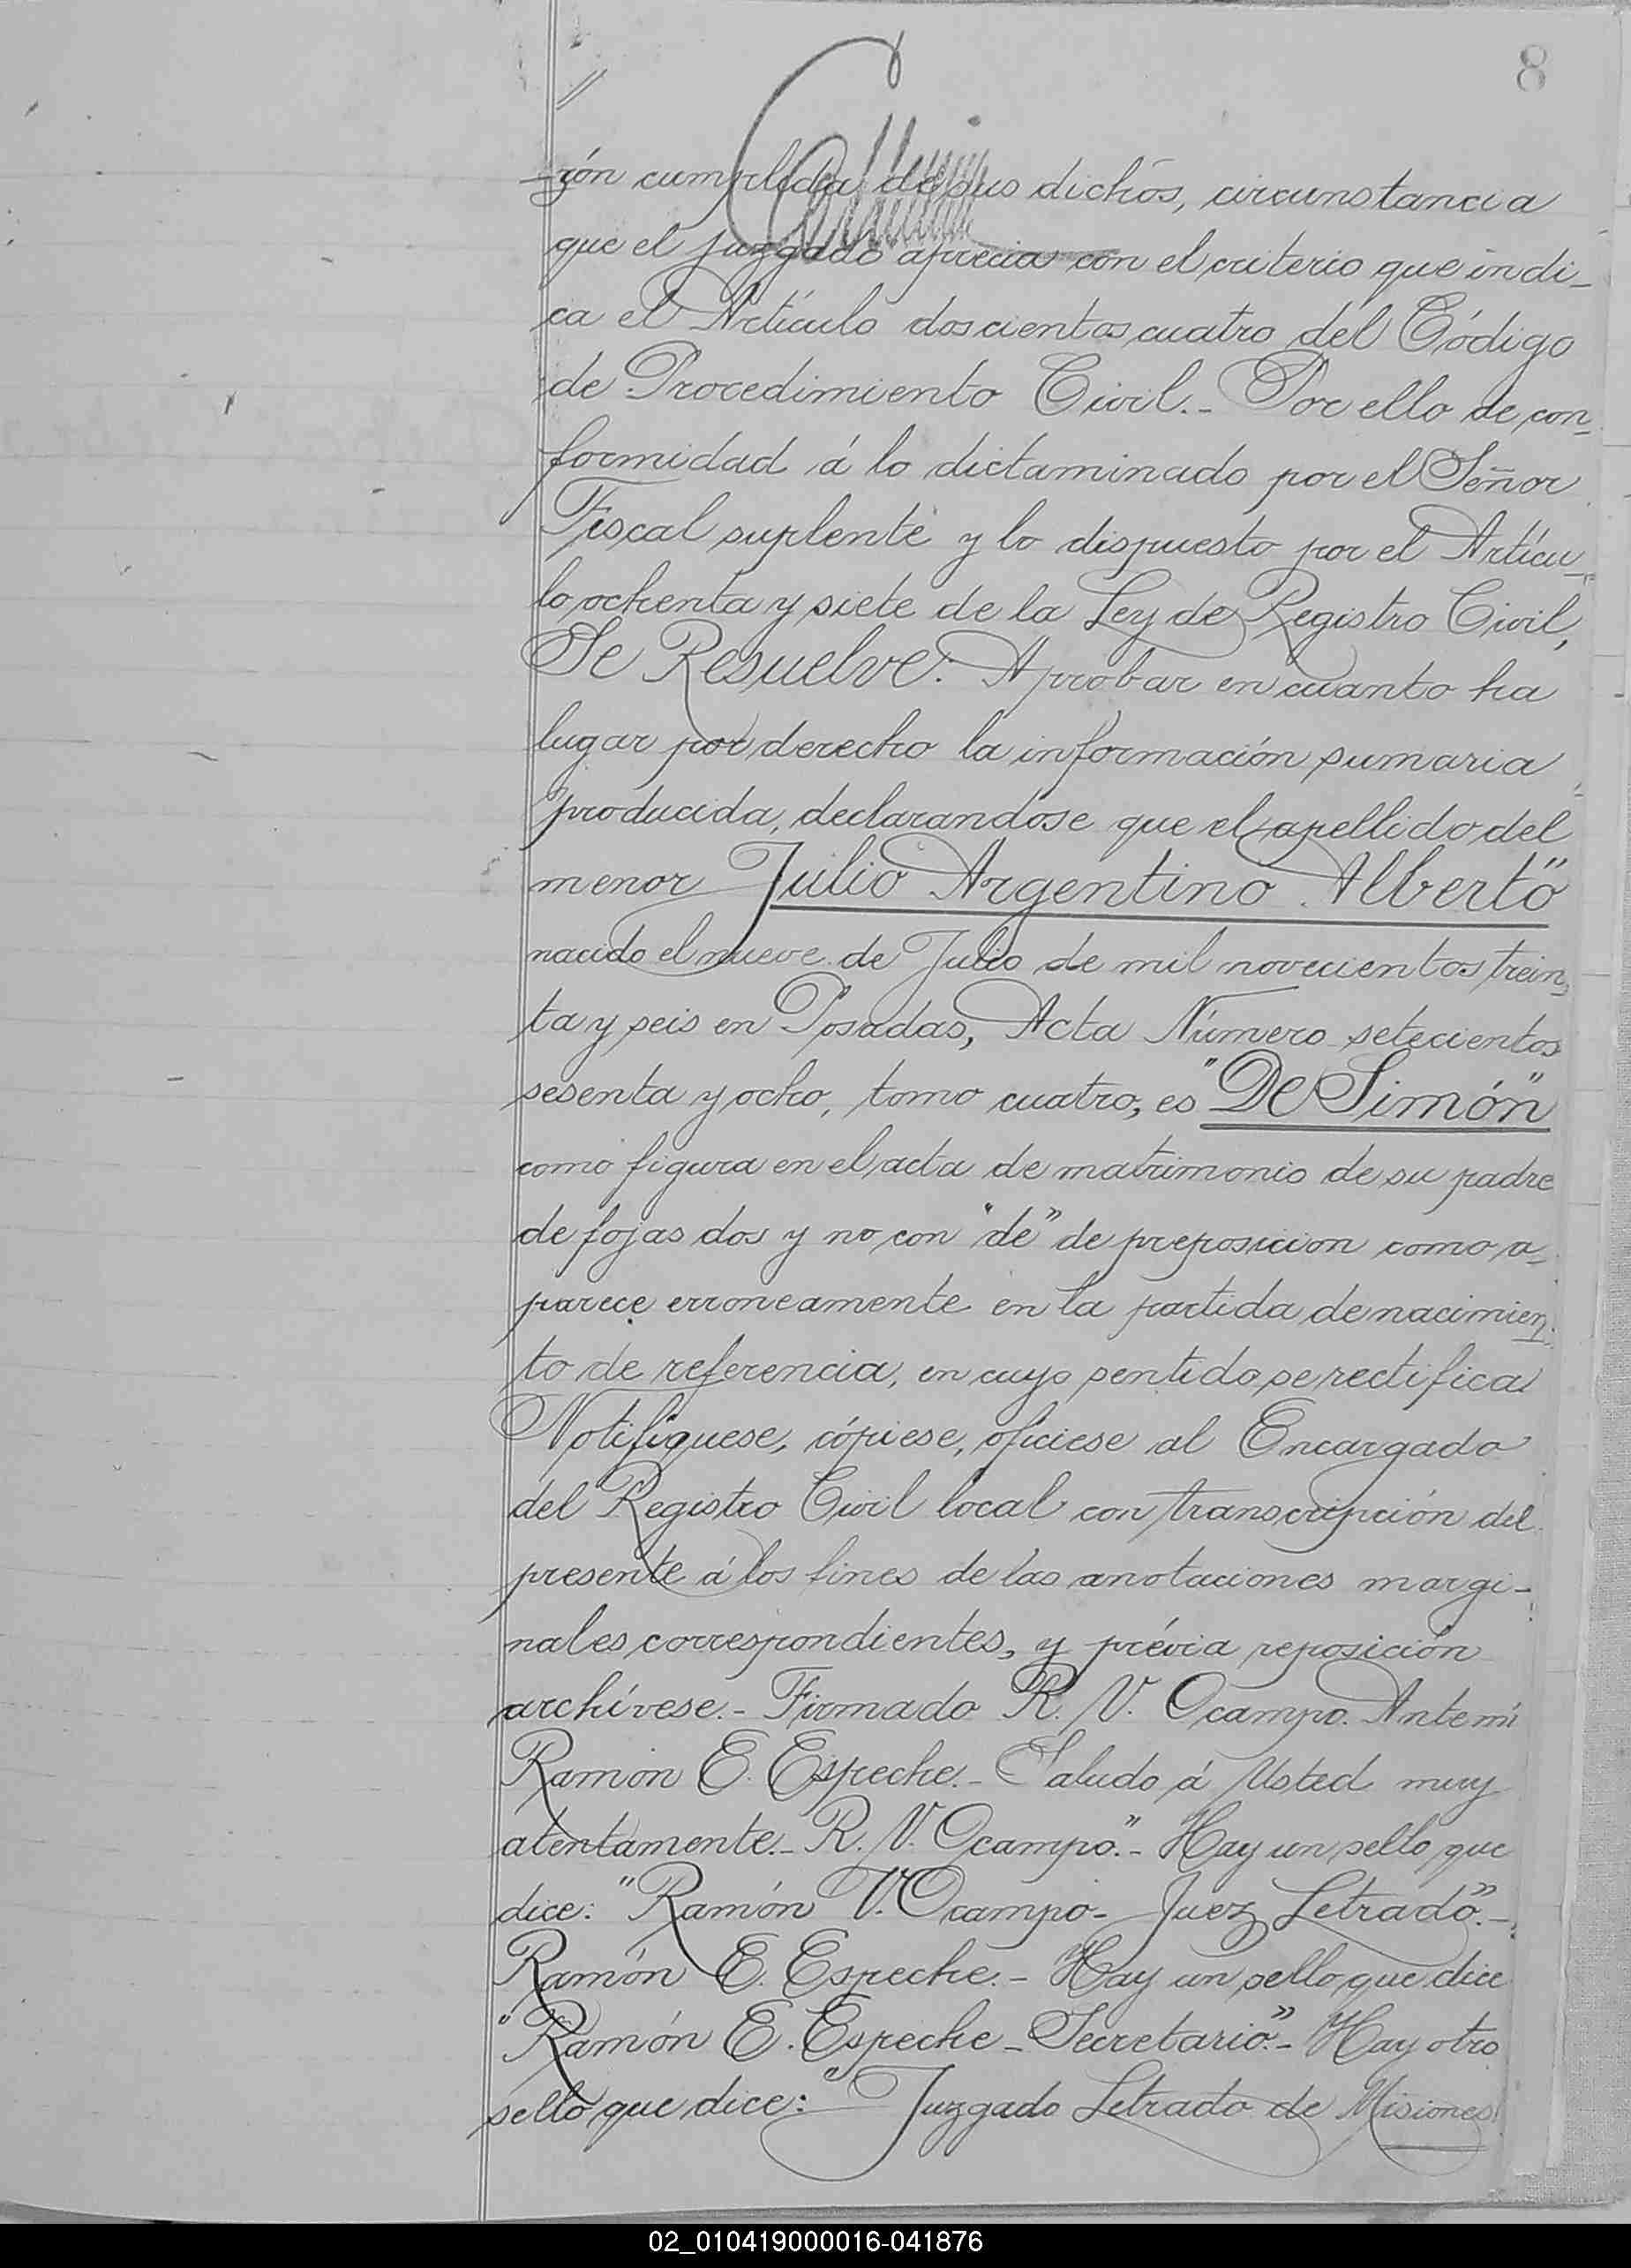 8
zón cumplida de sus dichos, circunstancia
que el juzgado aprecia con el criterio que indi-
ca el Artículo doscientos cuatro del Código
de Procedimiento Civil.- Por ello de con-
formidad á lo dictaminado por el Señor
Fiscal suplente y lo dispuesto por el Artícu-
lo ochenta y siete de la Ley de Registro Civil,
Se Resuelve: Aprobar en cuanto ha
lugar por derecho la información sumaria
producida, declarandose que el apellido del
menor Julio Argentino Alberto"
nacido el nueve de Julio de mil novecientos trein-
ta y seis en Posadas, Acta Número setecientos
sesenta y ocho, tomo cuatro, es "De Simón"
como figura en el acta de matrimonio de su padre
de fojas dos y no con "de" de preposicion como a-
parece erroneamente en la partida de nacimien-
to de referencia, en cuyo sentido se rectifica
Notifíquese, cópiese, ofíciese al Encargado
del Registro Civil local con transcripción del
presente á los fines de las anotaciones margi-
nales correspondientes, y prévia reposición
archívese.- Firmado R. V. Ocampo. Ante mí
Ramon E. Espeche.- Saludo á Usted muy
atentamente.- R. V. Ocampo".- Hay un sello que
dice: "Ramón V. Ocampo- Juez Letrado".-
Ramón E. Espeche.- Hay un sello que dice
"Ramón E. Espeche - Secretario".- Hay otro
sello que dice: "Juzgado Letrado de Misiones
02_010419000016-041876